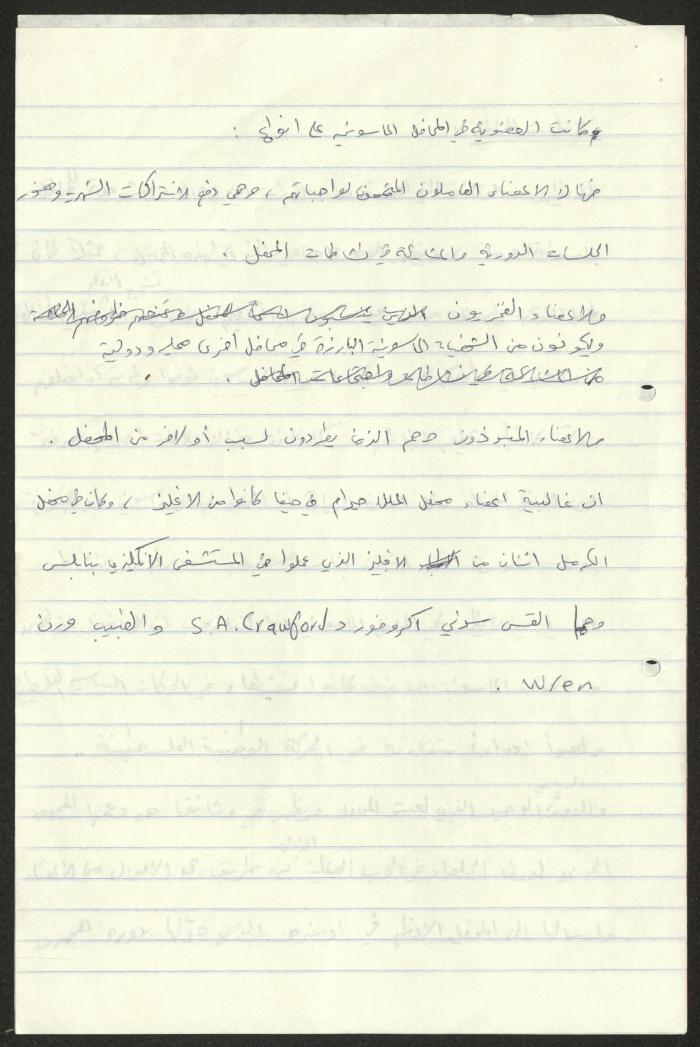 وكانت العضوية في المحافل الماسونية على انواع :
فهناك الاعضاء العاملون المتممون لواجباتهم ، وهي دفع الاشتراكات الشهرية وحضور
الجلسات الدورية والمشاركة في نشاطات المحفل .
والاعضاء الفخريون
ويكونون من الشخصيات الماسونية البارزة في محافل أخرى محلية ودولية
والاعضاء المنبوذون وهم الذين يطردون لسبب أو لآخر من المحفل .
ان غالبية اعضاء محفل الملك حيرام في حيفا كانوا من الانجليز ، وكان في محفل
الكرمل اثنان من الانجليز الذي عملوا في المستشفى الانكليزي بنابلس
وهما القس سوني اكروفورد S.A. Crawford والطبيب ورن
Wren .